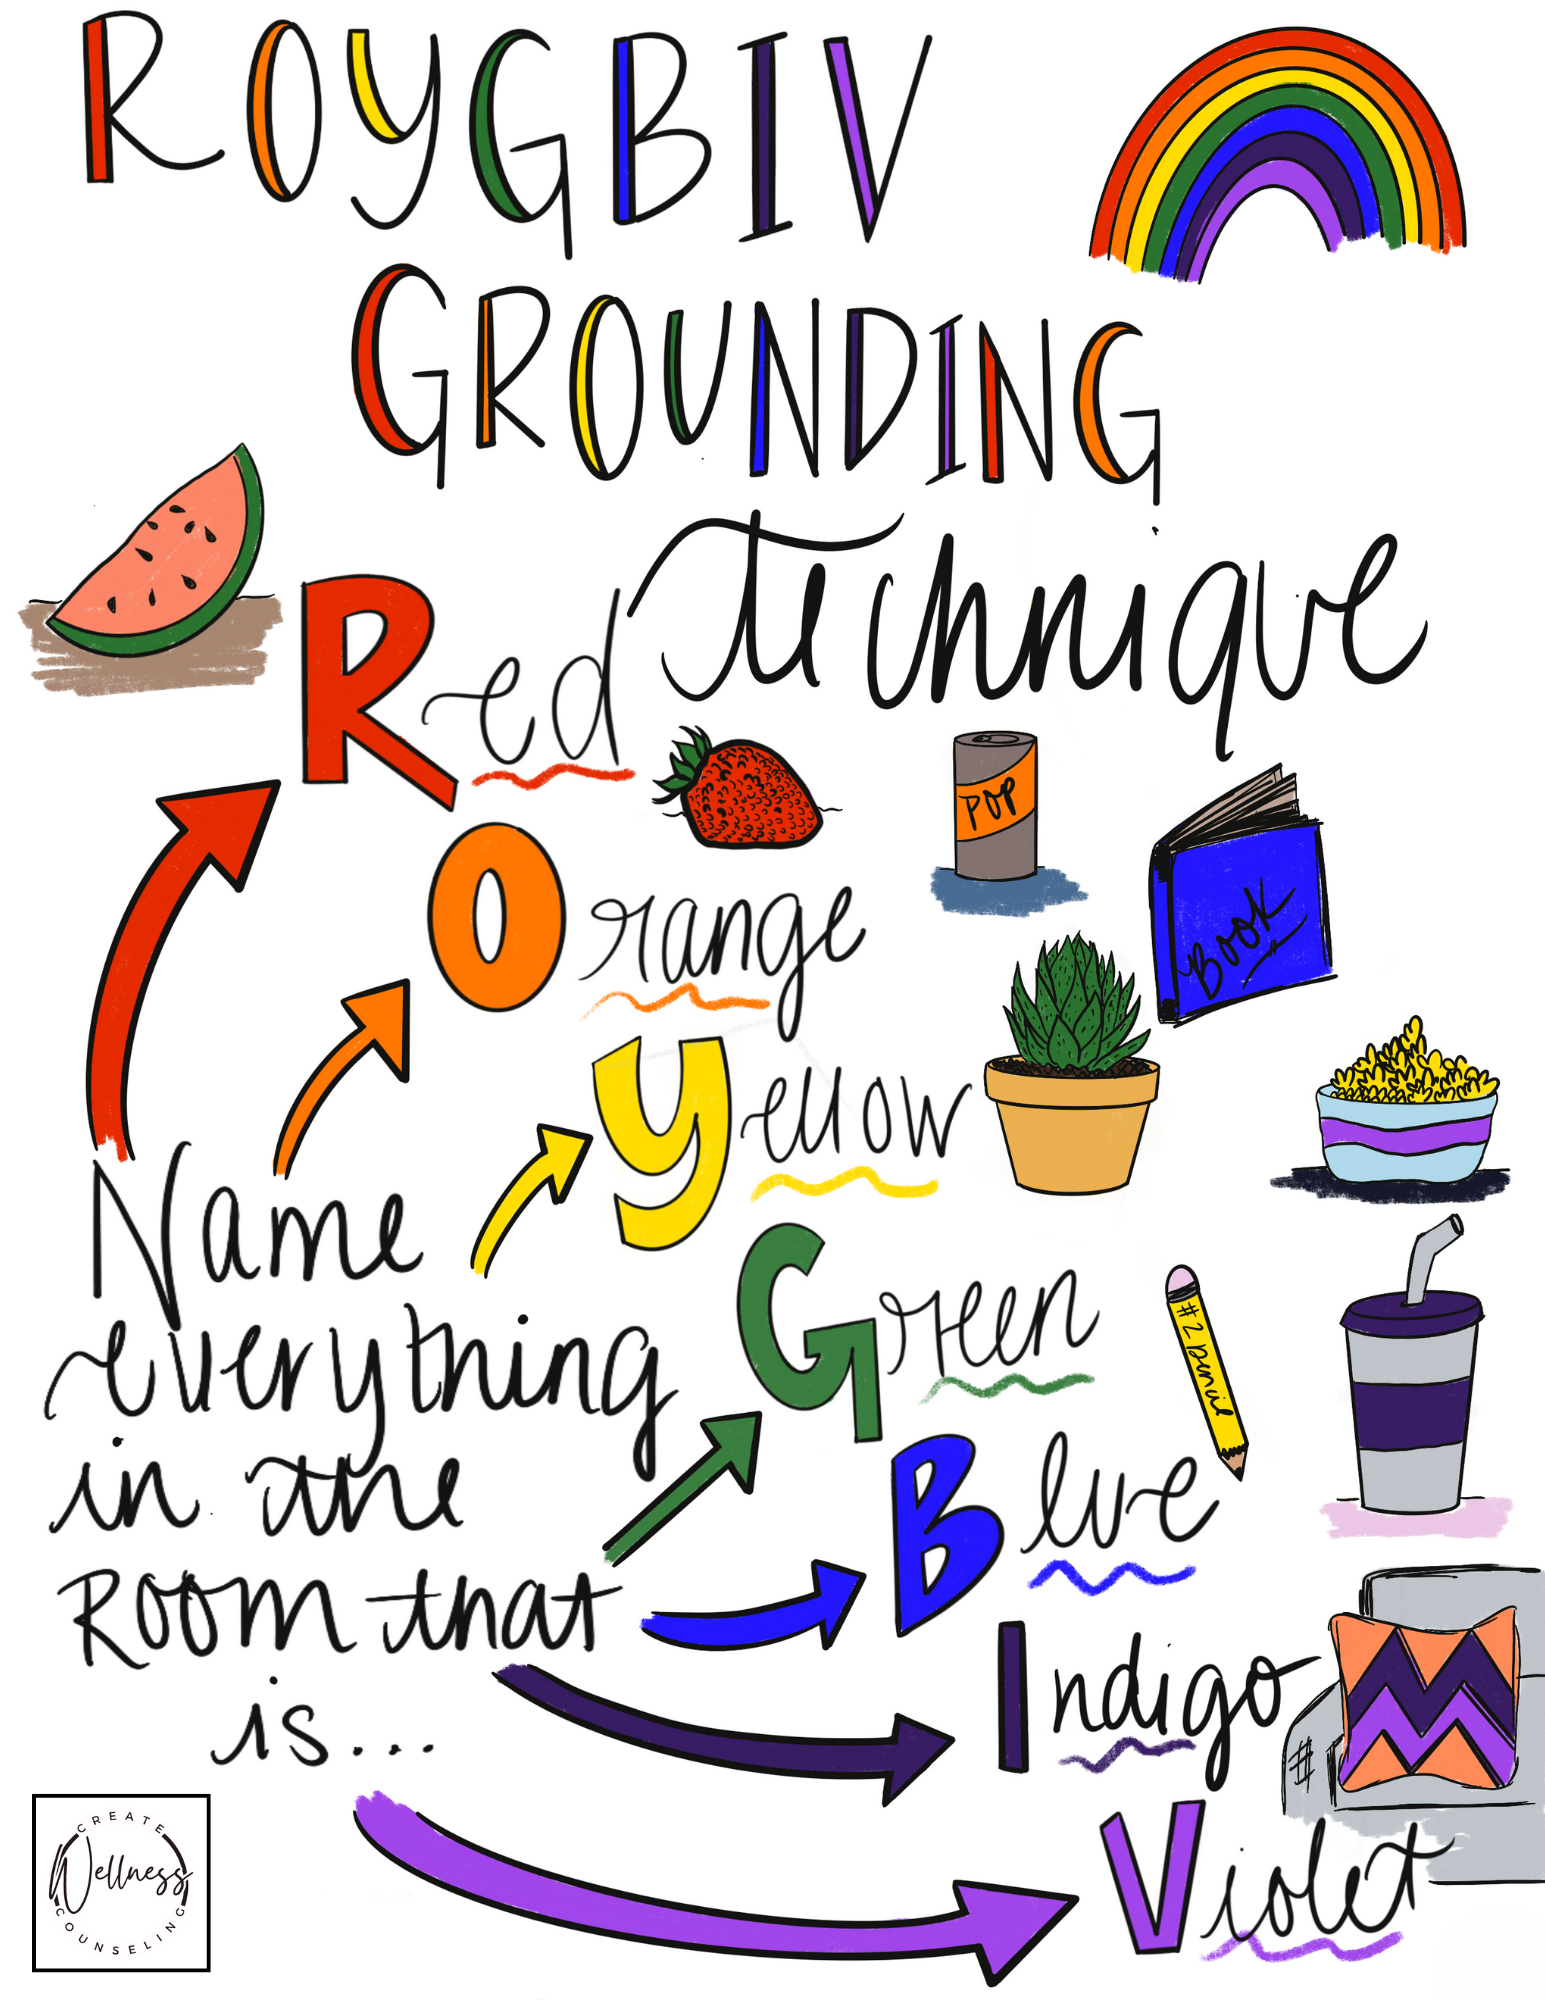 ROYGBIV
GROUNDING
Technique
Red
Orange
Yellow
Green
Blue
Indigo
Violet
Name
everything
in the
Room that
is...
POP
Book
#2 pencil
#
CREATE
Wellness
COUNSELING